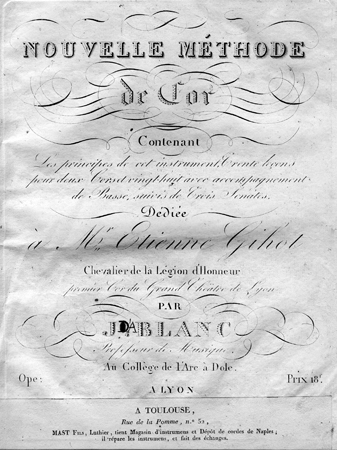 NOUVELLE MÉTHODE
de Cor
Contenant
Les principes de cet instrument, Trente leçons
pour deux Cors et vingt huit avec accompagnement
de Basse, suivis de Trois Sonates.
Dédiée
à Mr. Etienne Gihot
Chevalier de la Légion d'Honneur
premier Cor du Grand Théâter de Lyon
PAR
BLANC
Professeur de Musique,
Au Collège de l'Arc à Dole.
Ope: Prix 18f.
A LYON
A TOULOUSE,
Rue de la Pomme, n.º 52,
MAST Fils, Luthier, tient Magasin d'instrumens et Dépôt de cordes de Naples;
il répare les instrumens, et fait des échanges.